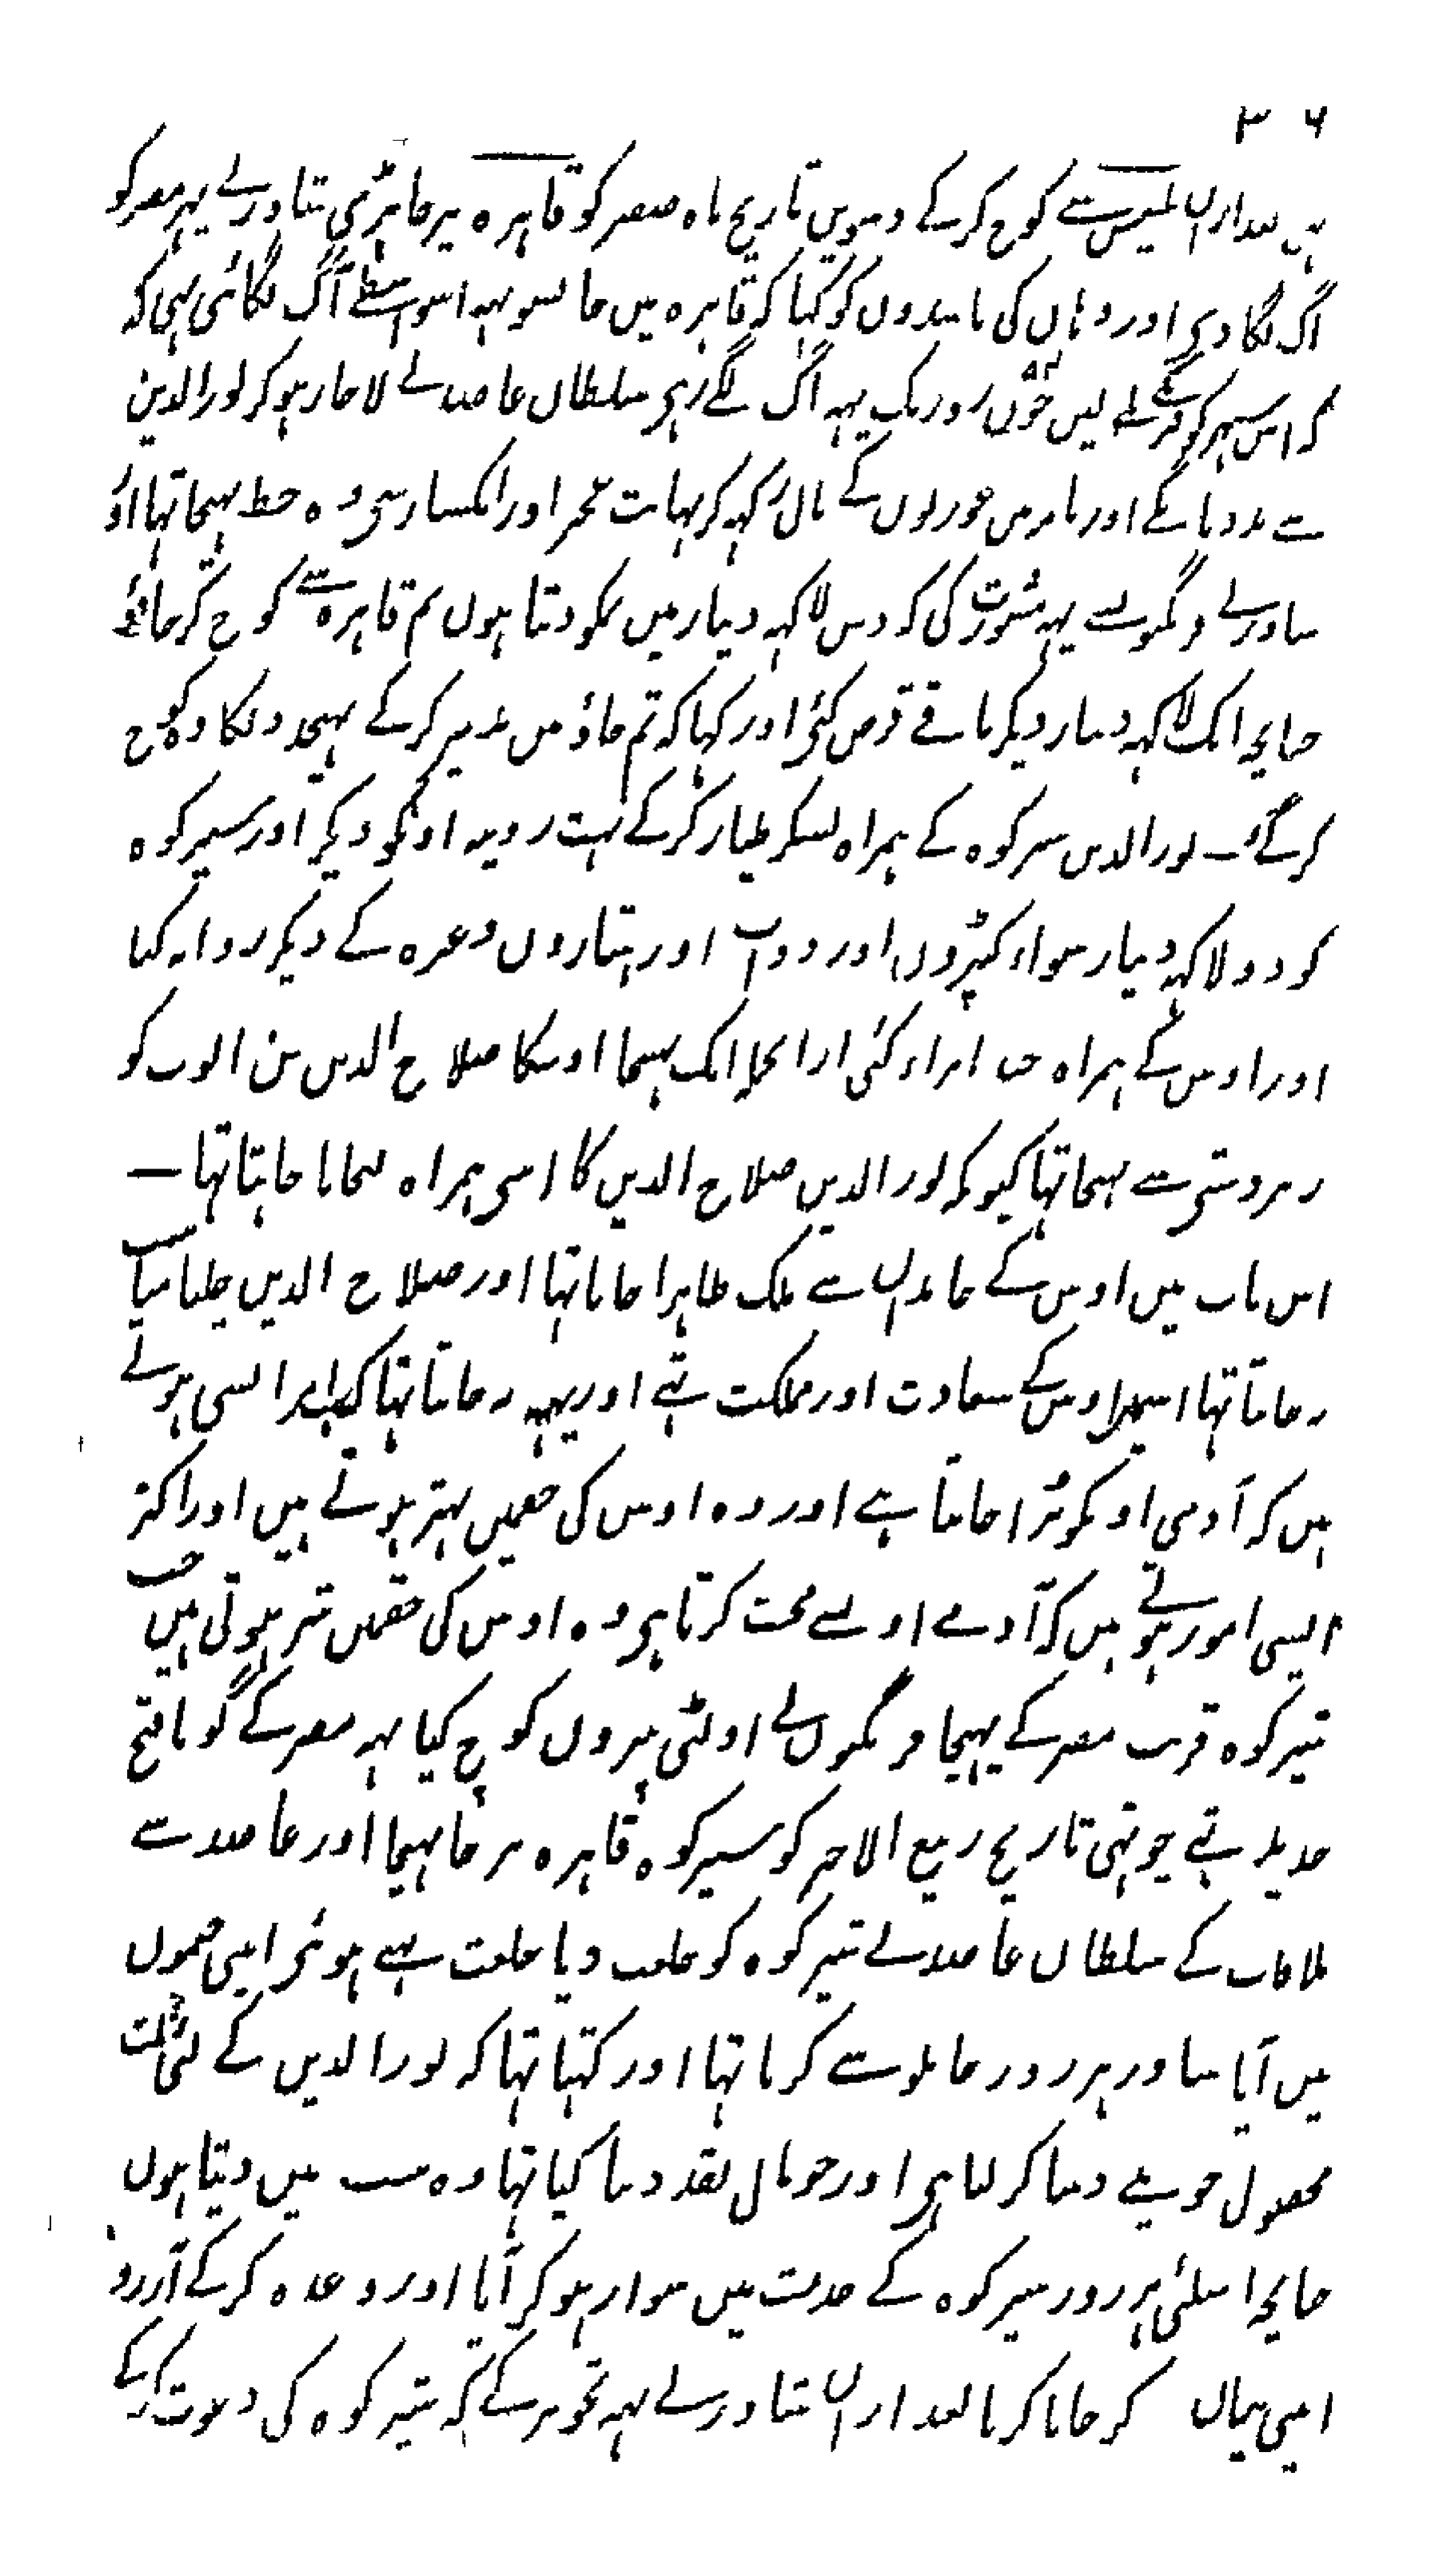 ۳۶
ہیں بعد ازاں بلبیس سے کوچ کرکے دسویں تاریخ ماہ صفر کو قاہرہ پر جا پڑی شاور نے شہر مصر کو
آگ لگا دی اور وہاں کی باشندوں کو کہا کہ قاہرہ میں جا بسو یہہ اسواسطے آگ لگائی تہی کہ
فرنگ اس شہر کو نہ لے لیں چوّن روز تک یہہ آگ لگے رہی سلطان عاضد نے لاچار ہوکر نورالدین
سے مدد مانگے اور نامہ میں عورتوں کے بال رکہہ کر نہایت عجز اور انکسار سی وہ خط بہیجا تہا اور
شاور نے فرنگیوں سے یہہ مشورت کی کہ دس لاکہہ دینار میں تمکو دیتا ہوں تم قاہرہ سے کوچ کر جاؤ
چنانچہ ایک لاکہہ دینار دیکر باقے قرض کئی اور کہا کہ تم جاؤ میں تدبیر کرکے بہیجدونگا وہ کوچ
کرگئے — نورالدین شیرکوہ کے ہمراہ لشکر طیار کرکے بہت روپیہ اونکو دیکر اور شیرکوہ
کو دو لاکہہ دینار سواء کپڑوں اور دوآب اور ہتیاروں وغیرہ کے دیکر روانہ کیا
اور اوس کے ہمراہ چند امراء کئی ازانجملہ ایک بہتیجا اوسکا صلاح الدین بن ایوب کو
زبردستی سے بہیجا تہا کیونکہ نورالدین صلاح الدین کا اسی ہمراہ لیجانا چاہتا تہا —
اس باب میں اوس کے خاندان سے ملک ظاہرا جاتا تہا اور صلاح الدین چلنا مناسب
نہ جانتا تہا اسمیں اوس کے سعادت اور مملکت تہے اور یہہ نہ جانتا تہا کہ اکثر امر ایسی ہوتے
ہیں کہ آدمی اونکو بُرا جانتا ہے اور وہ اوس کی حقمیں بہتر ہوتے ہیں اور اکثر
ایسی امور ہوتے ہیں کہ آدمے اونسے محبت کرتا ہی وہ اوس کی حقمیں شر ہوتی ہیں جب
شیرکوہ قریب مصر کے پہنچا فرنگیوں نے اولٹی پیروں کوچ کیا یہہ مصر کے گویا فتح
جدید تہے چوتہی تاریخ ربیع الاخر کو شیرکوہ قاہرہ پر جا پہنچا اور عاضد سے
ملاقات کے سلطان عاضد نے شیرکوہ کو خلعت دیا خلعت پہنے ہوئی اپنی خیموں
میں آیا شاور ہر روز چاپلوسے کرتا تہا اور کہتا تہا کہ نورالدین کے لئی ثلث
محصول جو مینے دینا کرلیا ہی اور جو مال نقد دینا کیا تہا وہ سب میں دیتا ہوں
چنانچہ اسلئی ہر روز شیرکوہ کے خدمت میں سوار ہوکر آتا اور وعدہ کرکے آرزو
اپنی بیان کر جایا کرتا بعد ازاں شاور نے یہہ تجویز کے کہ شیرکوہ کی دعوت کرکے